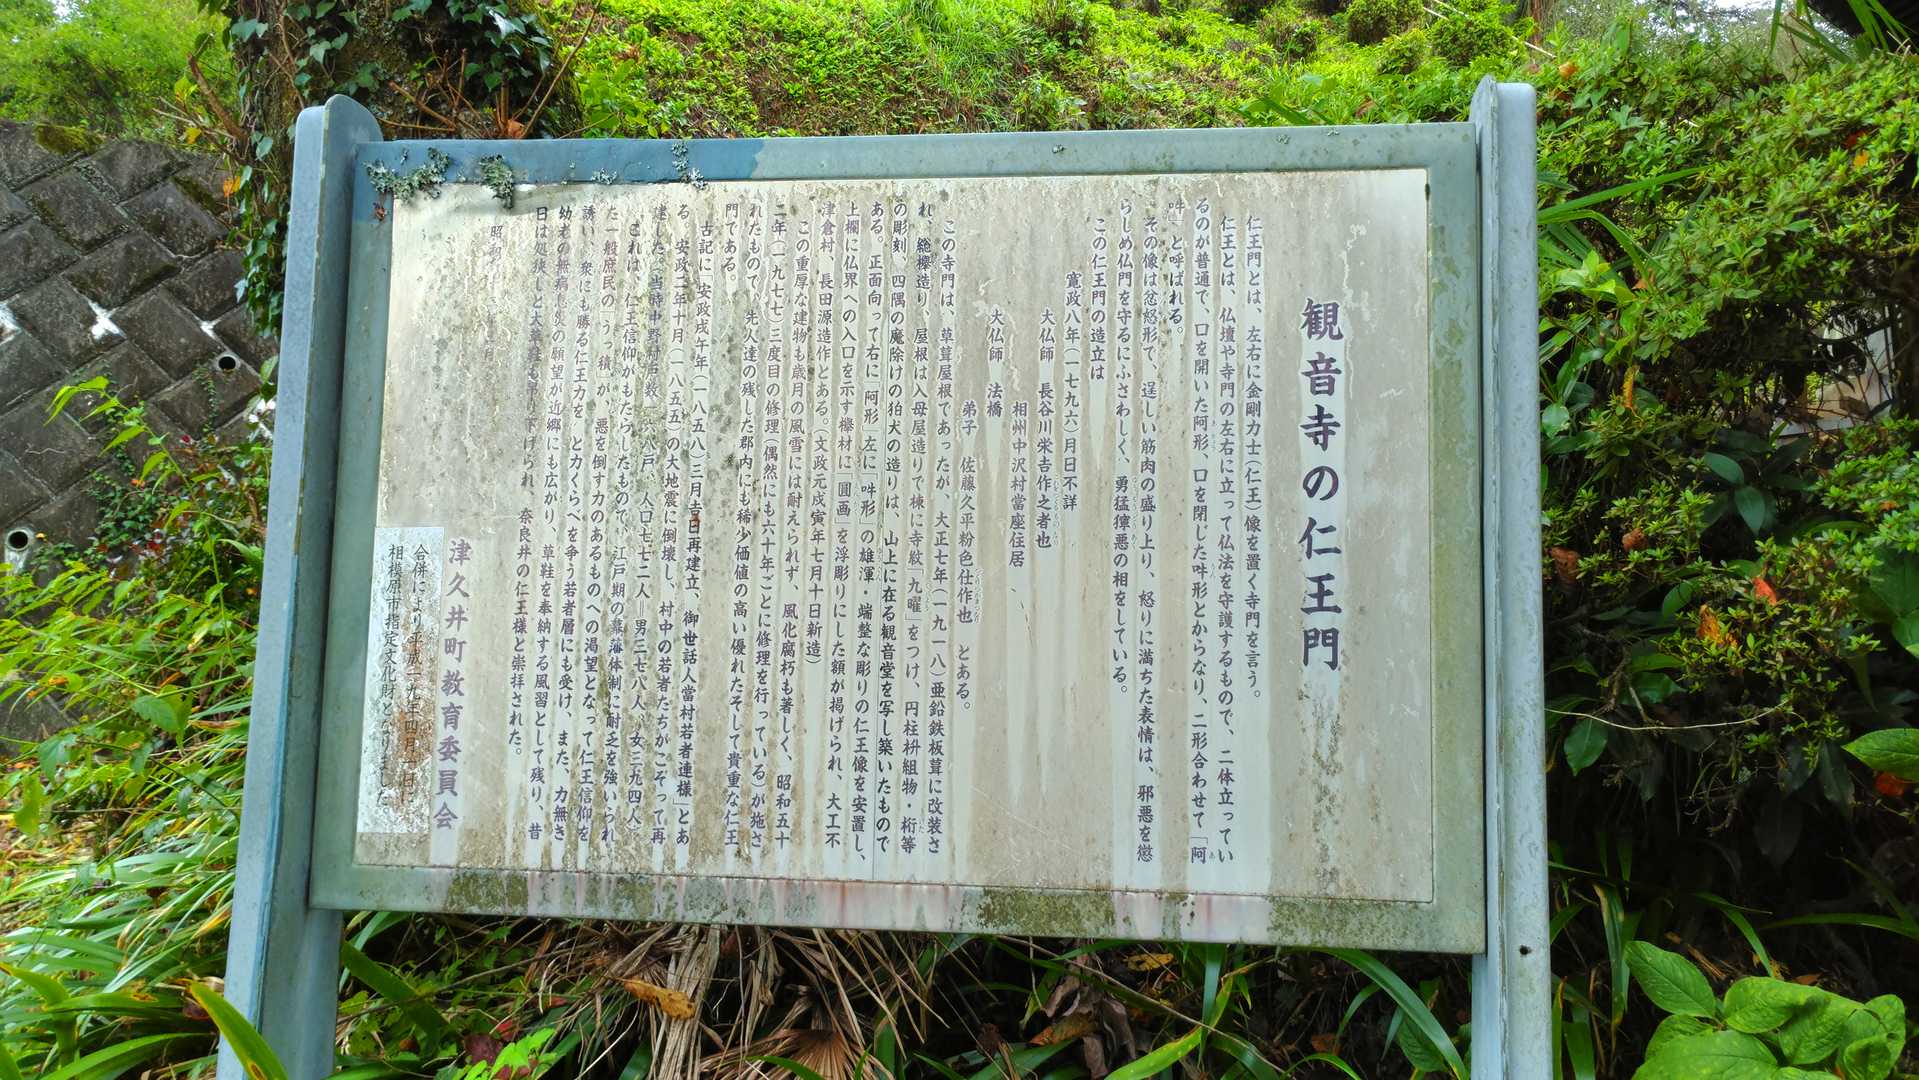 観音寺の仁王門
仁王門とは、左右に金剛力士(仁王)像を置く寺門を言う。
仁王とは、仏壇や寺門の左右に立って仏法を守護するもので、二体立ってい
るのが普通で、口を開いた阿形、口を閉じた吽形とからなり、二形合わせて「阿
吽」と呼ばれる。
その像は忿怒形で、逞しい筋肉の盛り上り、怒りに満ちた表情は、邪悪を懲
らしめ仏門を守るにふさわしく、勇猛獰悪の相をしている。
この仁王門の造立は
寛政八年(一七九六)月日不詳
大仏師 長谷川栄吉作之者也
相州中沢村當座住居
大仏師 法橋
弟子 佐藤久平粉色仕作也 とある。
この寺門は、草葺屋根であったが、大正七年(一九一八)亜鉛鉄板葺に改装さ
れ、総欅造り、屋根は入母屋造りで棟に寺紋「九曜」をつけ、円柱枡組物・桁等
の彫刻、四隅の魔除けの狛犬の造りは、山上に在る観音堂を写し築いたもので
ある。正面向って右に「阿形」左に「吽形」の雄渾・端整な彫りの仁王像を安置し、
上欄に仏界への入口を示す欅材に「圓画」を浮彫りにした額が掲げられ、大工不
津倉村、長田源造作とある。(文政元戊寅年七月十日新造)
この重厚な建物も歳月の風雪には耐えられず、風化腐朽も著しく、昭和五十
二年(一九七七)三度目の修理(偶然にも六十年ごとに修理を行っている)が施さ
れたもので、先人達の残した郡内にも稀少価値の高い優れたそして貴重な仁王
門である。
古記に「安政戌午年(一八五八)三月吉日再建立、御世話人當村若者連様」とあ
る。安政二年十月(一八五五)の大地震に倒壊し、村中の若者たちがこぞって再
建した。(当時中野村戸数一六八戸、人口七七二人＝男三七八人、女三九四人)
これは、仁王信仰がもたらしたもので、江戸期の幕藩体制に耐乏を強いられ
た一般庶民の「うっ積」が、悪を倒す力のあるものへの渇望となって仁王信仰を
誘い、衆にも勝る仁王力をと力くらべを争う若者層にも受け、また、力無き
幼老の無病息災の願望が近郷にも広がり、草鞋を奉納する風習として残り、昔
日は処狭しと大草鞋も吊り下げられ、奈良井の仁王様と崇拝された。
昭和
津久井町教育委員会
合併により平成一九年四月一日に、
相模原市指定文化財となりました。